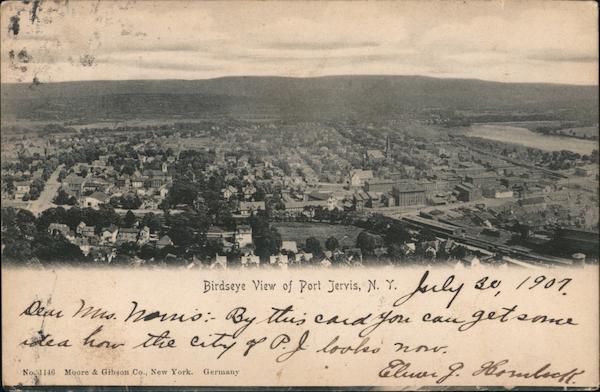 Birdseye View of Port Jervis, N. Y.
July 30, 1907.
Dear Mrs. Norris:- By this card you can get some
idea how the city of P.J looks now.
No. 1146 Moore & Gibson Co., New York. Germany
Elmer J. Hornbeck